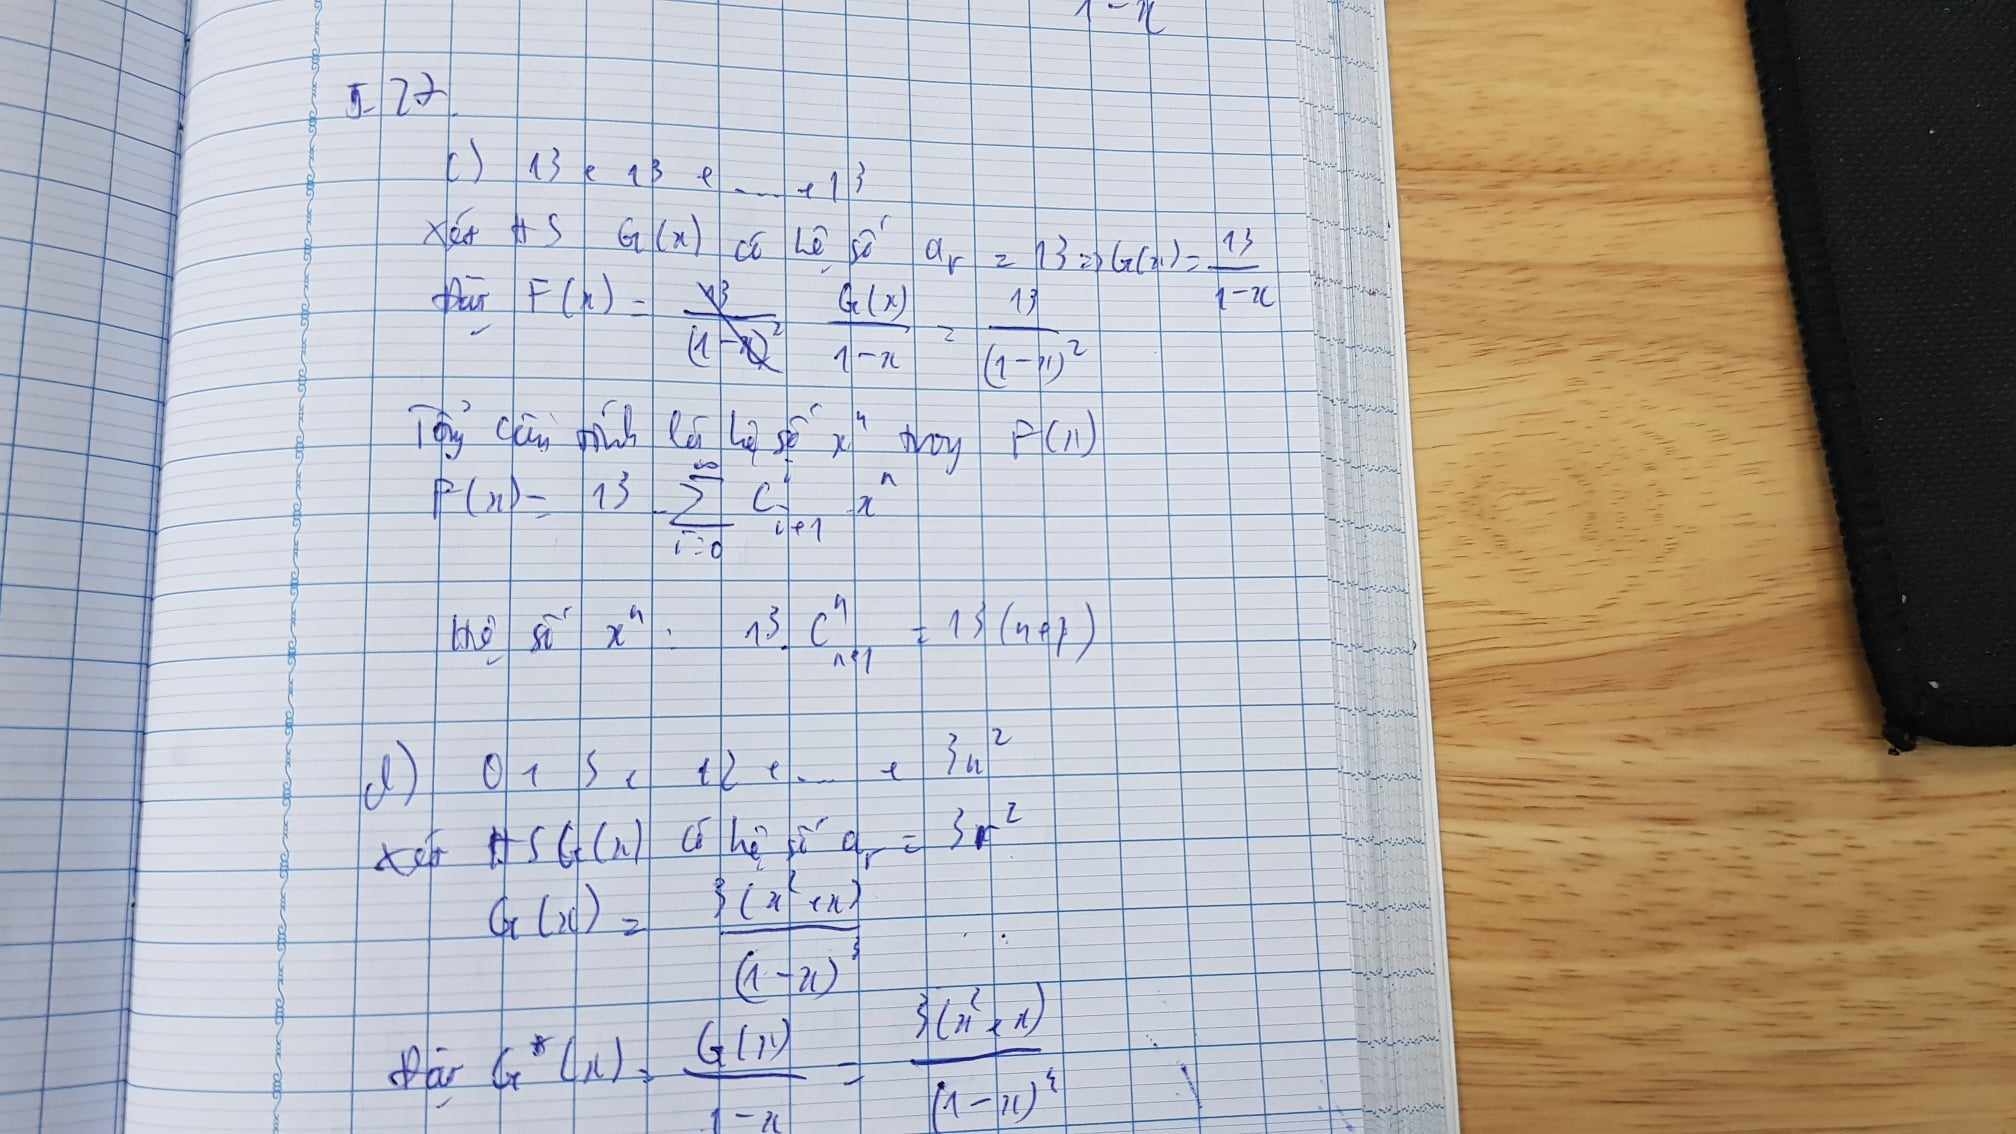 1-x
I-27.
c) 13 + 13 + .... + 13
Xét HS G(x) có hệ số a_r = 13 => G(x) = 13/(1-x)
Đặt F(x) = G(x)/(1-x) = 13/(1-x)^2
Tổng cần tính là hệ số x^n trong F(x)
F(x) = 13 ∑_{i=0}^{∞} C_{i+1}^{i} x^n
Hệ số x^n : 13. C_{n+1}^{n} = 13(n+1)
d) 0 + 3 + 12 + .... + 3n^2
Xét HS G(x) có hệ số a_r = 3r^2
G(x) = 3(x^2+x)/(1-x)^3
Đặt G*(x) = G(x)/(1-x) = 3(x^2+x)/(1-x)^4